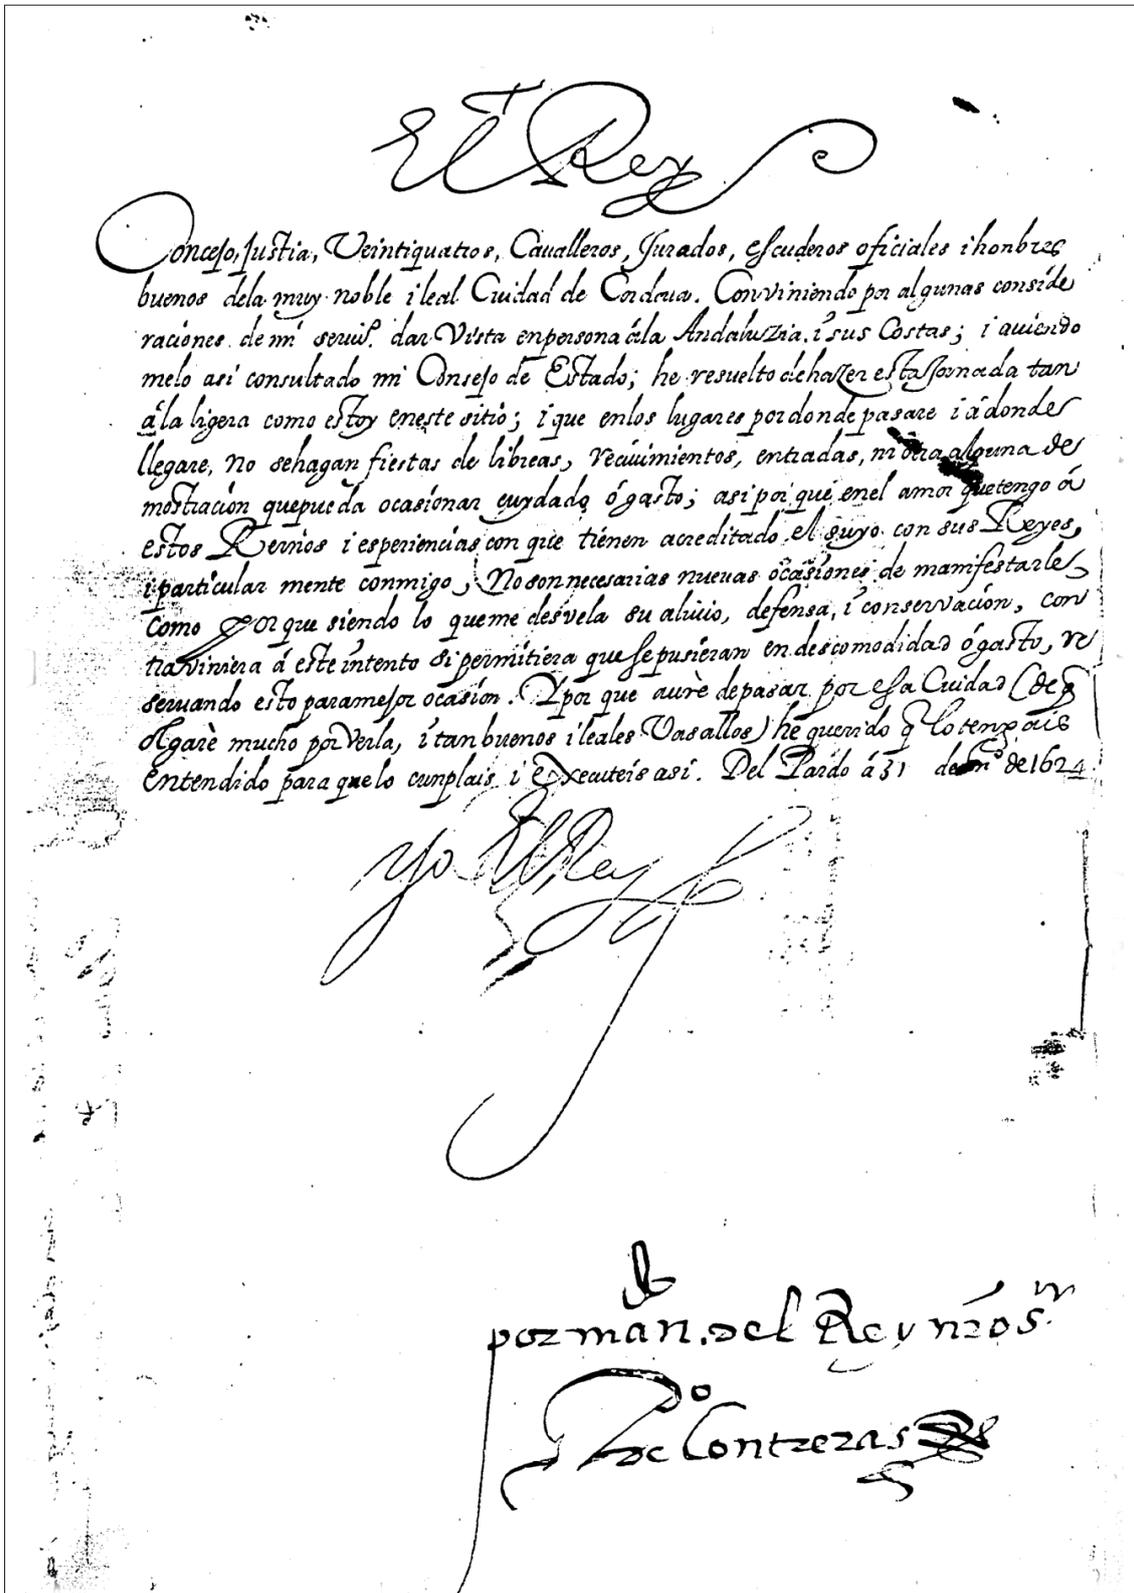 El Rey
Concejo, Justia, Veintiquatros, Cavalleros, Jurados, escuderos oficiales i honbres
buenos dela muy noble i leal Cuidad de Cordova. Conviniendo por algunas conside
raciones de mi servi.º dar Vista en persona ála Andaluzia, i sus Costas; i aviendo
melo asi consultado mi Consejo de Estado; he resuelto de hazer esta Jornada tan
á la ligera como estoy eneste sitio; i que enlos lugares por donde pasare i á donde
llegare, no sehagan fiestas de libreas, recivimientos, entradas, ni otra alguna de
mostracion quepueda ocasionar cuydado ó gasto; asi por que enel amor quetengo á
estos Reinos i esperiencias con que tienen acreditado el suyo con sus Reyes,
i particular mente conmigo, No son necesarias nuevas ocasiones de manifestarle,
como por que siendo lo queme desvela su alivio, defensa, i conservacion, con
traviniera á este intento si permitiera que se pusieran en descomodidad ó gasto, re
servando esto paramejor ocasion. Y por que avrè depasar por esa Cuidad (de q̃
olgarè mucho por Verla, i tan buenos i leales Vasallos) he querido q̃ lo tengais
entendido para que lo cunplais i executeis asi. Del Pardo á 31 de En.º de 1624
Yo El Rey
por man. del Rey nro S.ʳ
P.º de Contreras